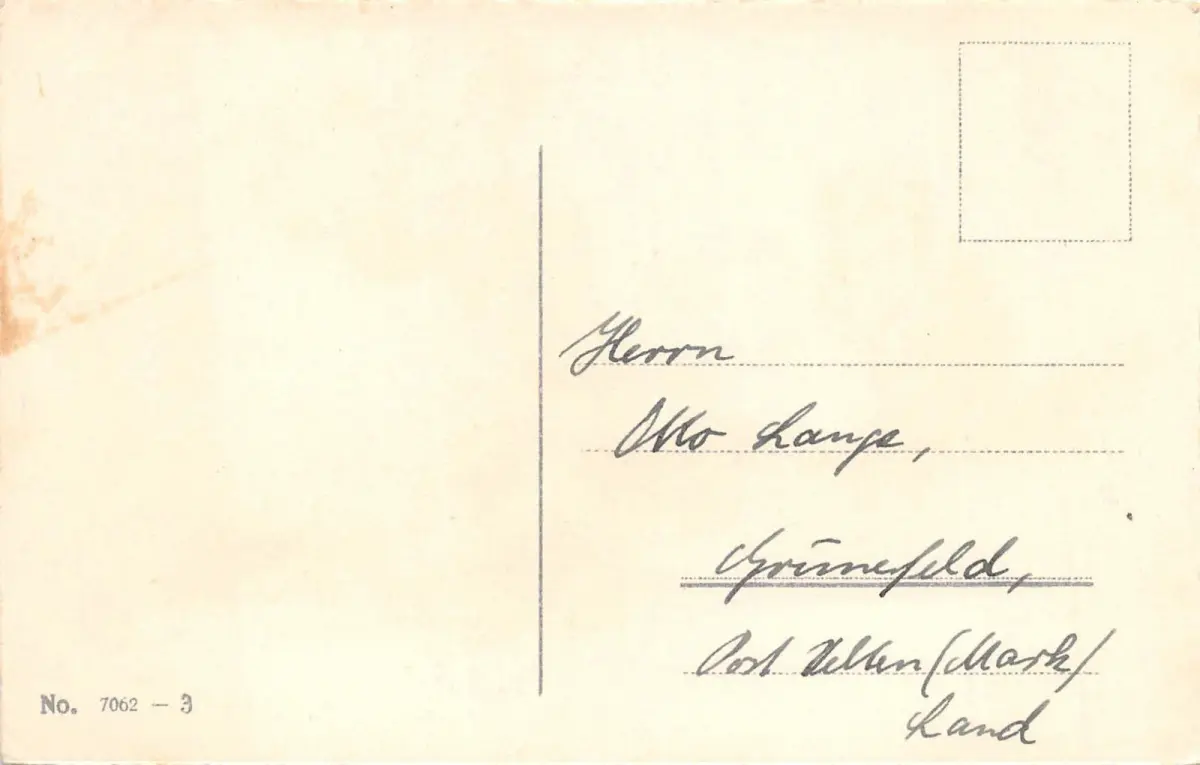 Herrn
Otto Lange,
Grünefeld,
Post Velten (Mark)
Land
No. 7062 — 3